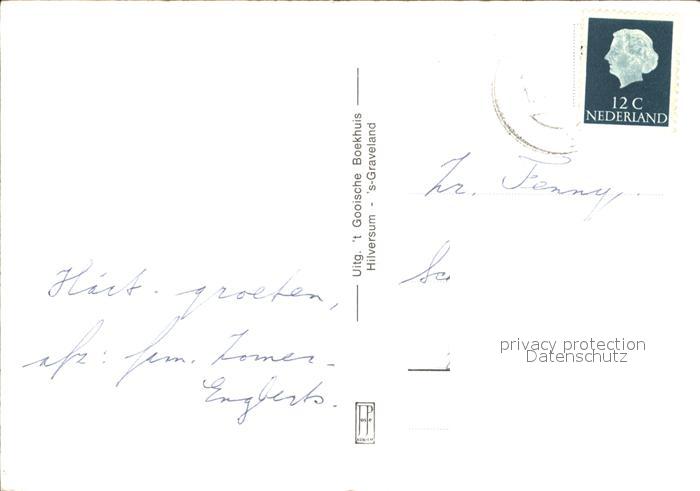 12 C
NEDERLAND
Uitg. 't Gooische Boekhuis
Hilversum - 's-Graveland
Zr. Fenny.
Hart. groeten,
afz: fam. Zomer-
Engberts.
privacy protection
Datenschutz